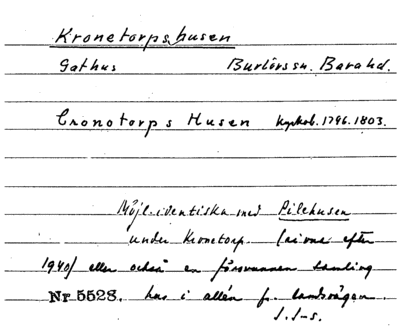 Kronetorpshusen
Gathus Burlövs sn. Bara hd.
Cronotorps Husen kyrkob. 1796. 1803.
Möjl. identiska med Pilehusen
under Kronetorp. efter
1940/ eller också en försvunnen samling
Nr. 5528. hus i allén fr. landsvägen.
S. I-s.